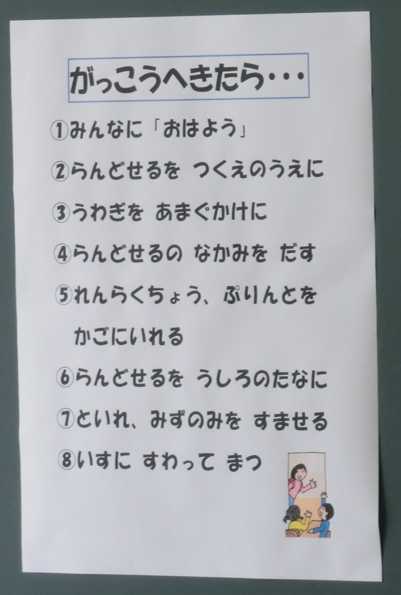 がっこうへきたら・・・
①みんなに「おはよう」
②らんどせるを つくえのうえに
③うわぎを あまぐかけに
④らんどせるの なかみを だす
⑤れんらくちょう、ぷりんとを
かごにいれる
⑥らんどせるを うしろのたなに
⑦といれ、みずのみを すませる
⑧いすに すわって まつ